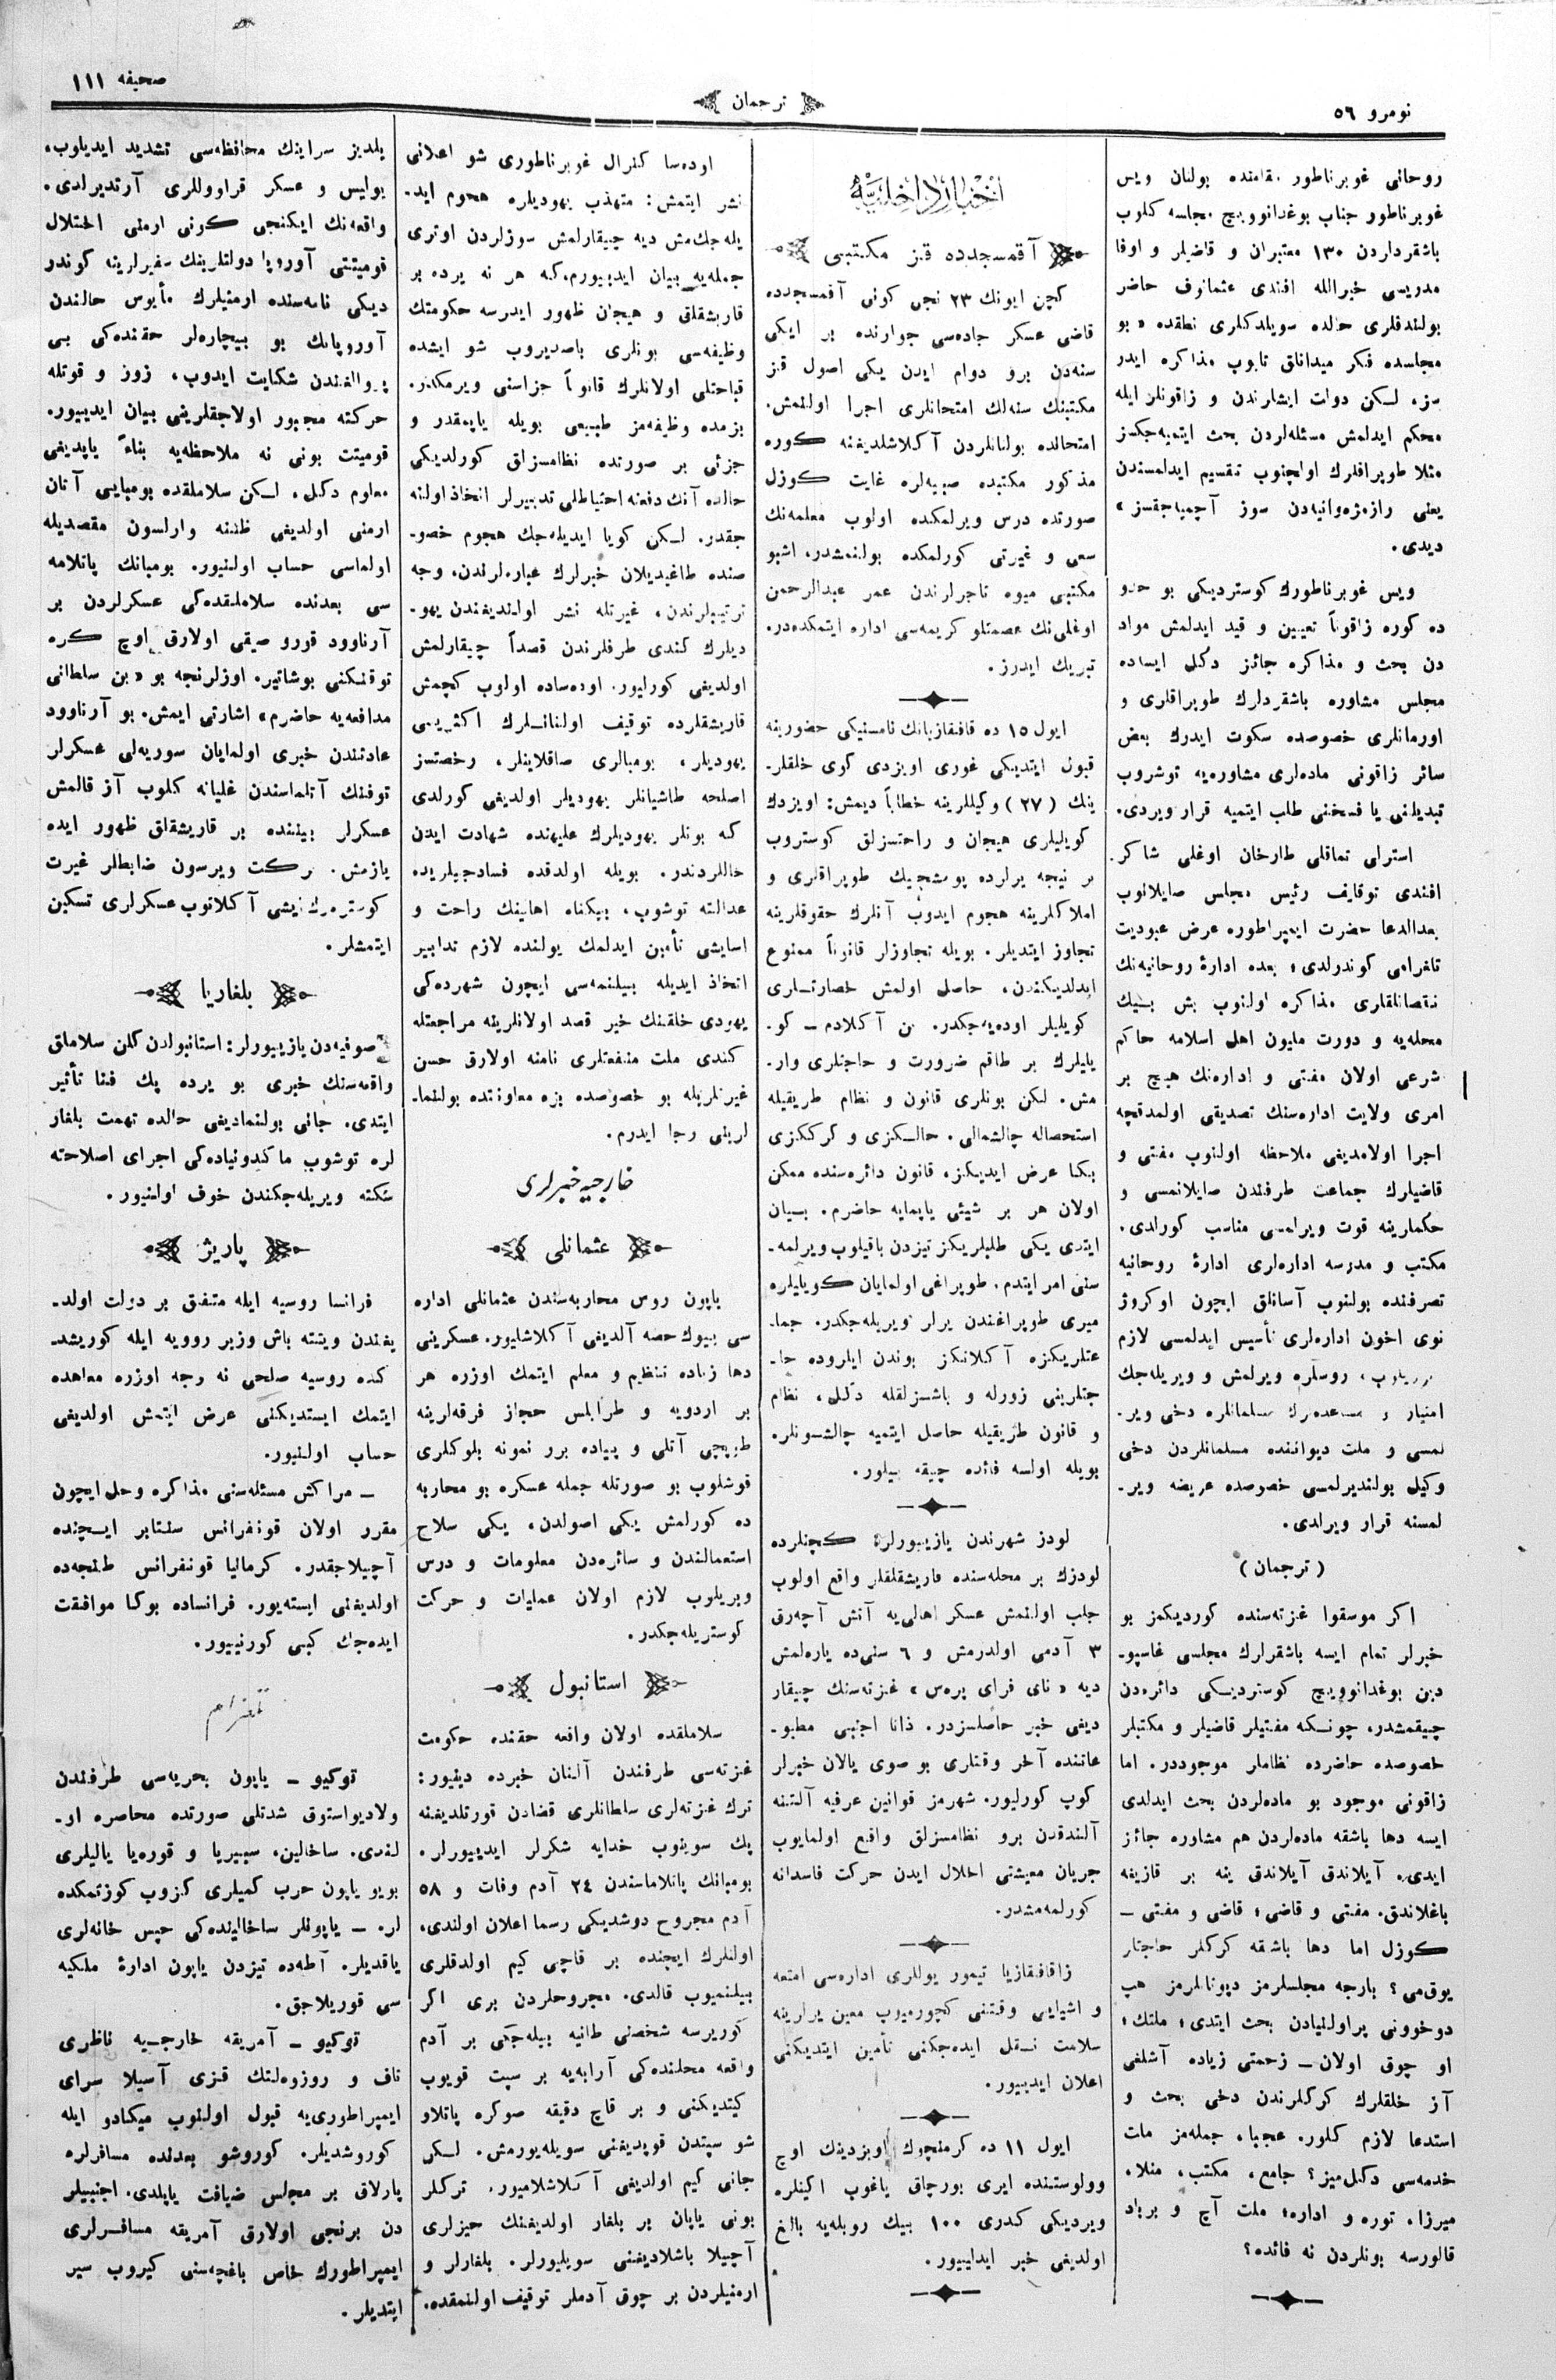 نومرو ٥٦
ترجمان
صحیفه ١١١
روحانی غوبرناطور مقامنده بولنان ویس
غوبرناطور جناب بوغدانوویچ مجلسه کلوب
باشقرداردن ١٣٠ معتبران و قاضیلر و اوفا
مدرسی خیرالله افندی عثمانوف حاضر
بولندقلری حالده سویلدکلری نطقده «بو
مجلسده فکر میدانلق تابوب مذاکره ایدر
سز، لکن دولت ایشارندن و زاقونلر ایله
محکم ایدلمش مسئله‌لردن بحث ایتمیه‌جکسز
مثلا طوپراقلرك اولچنوب تقسیم ایدلمسندن
یعنی رازمژه‌وانیه‌دن سوز آچمیه‌جقسز»
دیدی.
ویس غوبرناطورك کوستردیکی بو حدو
ده کوره زاقوناً تعیین و قید ایدلمش مواد
دن بحث و مذاکره جائز دکل ایساده
مجلس مشاوره باشقردلرك طوپراقلری و
اورمانلری خصوصده سکوت ایدرك بعض
سائر زاقونی ماده‌لری مشاوره‌یه توشروب
تبدیلنی یا فسخنی طلب ایتمیه قرار ویردی.
استرلی تماقلی طارخان اوغلی شاکر
افندی توقایف رئیس مجلس صایلانوب
بعدالدعا حضرت ایمپراطوره عرض عبودیت
تلغرامی کوندرلدی؛ بعده ادارۀ روحانیه‌نك
نقصانلقلری مذاکره اولنوب بش بیك
محله‌یه و دورت ملیون اهل اسلامه حاکم
شرعی اولان مفتی و اداره‌نك هیچ بر
امری ولایت اداره‌سنك تصدیقی اولمدقچه
اجرا اولامدیغی ملاحظه اولنوب مفتی و
قاضیلرك جماعت طرفندن صایلانمسی و
حکمارینه قوت ویرلمسی مناسب کورلدی.
مکتب و مدرسه اداره‌لری ادارۀ روحانیه
تصرفنده بولنوب آسانلق ایچون اوکروژ
نوی اخون اداره‌لری تأسیس ایدلمسی لازم
روسلره ویرلمش و ویریله‌جك
امتیاز و مساعده‌لرك مسلمانلره دخی ویر-
لمسی و ملت دیواننده مسلمانلردن دخی
وکیل بولندیرلمسی خصوصده عریضه ویر-
لمسنه قرار ویرلدی.
(ترجمان)
اکر موسقوا غزته‌سنده کوردیکمز بو
خبرلر تمام ایسه باشقرلرك مجلسی غاسپو-
دین بوغدانوویچ کوستردیکی دائره‌دن
چیقمشدر، چونکه مفتیلر قاضیلر و مکتبلر
خصوصده حاضرده نظاملر موجوددر. اما
زاقونی موجود بو ماده‌لردن بحث ایدلدی
ایسه دها باشقه ماده‌لردن هم مشاوره جائز
ایدی. آیلاندق آیلاندق ینه بر قازیغه
باغلاندق. مفتی و قاضی؛ قاضی و مفتی –
کوزل اما دها باشقه کرکلر حاجتلر
یوق‌می؟ بارجه مجلسلرمز دپوتاتلرمز هپ
دوخوونی پراولنیادن بحث ایتدی؛ ملتك؛
او چوق اولان – زحمتی زیاده آشلغی
آز خلقلرك کرکلرندن دخی بحث و
استدعا لازم کلور. عجبا، جمله‌مز ملت
خدمه‌سی دکل‌میز؟ جامع، مکتب، منلا،
میرزا، توره و اداره؛ ملت آچ و برباد
قالورسه بونلردن نه فائده؟
اخبار داخلیه
آقمسجدده قز مکتبی
کچن ایونك ٢٣ نجی کونی آقمسجدده
قاضی عسکر جاده‌سی جوارنده بر ایکی
سنه‌دن برو دوام ایدن یکی اصول قز
مکتبنك سنه‌لك امتحانلری اجرا اولنمش.
امتحانده بولنانلردن آکلاشلدیغنه کوره
مذکور مکتبده صبیه‌لره غایت کوزل
صورتده درس ویرلمکده اولوب معلمه‌نك
سعی و غیرتی کورلمکده بولنمشدر. اشبو
مکتبی میوه تاجرلرندن عمر عبدالرحمن
اوغلی‌نك عصمتلو کریمه‌سی اداره ایتمکده‌در.
تبریك ایدرز.
ایول ١٥ ده قافقازیانك نامستنیکی حضورینه
قبول ایتدیکی غوری اویزدی کوی خلقلر-
ینك (٢٧) وکیللرینه خطاباً دیمش: اویزدك
کویلیلری هیجان و راحتسزلق کوستروب
بر نیجه یرلرده پومشچیك طوپراقلری و
املاکلرینه هجوم ایدوب آنلرك حقوقلرینه
تجاوز ایتدیلر. بویله تجاوزلر قانوناً ممنوع
ایدلدیکندن، حاصل اولمش خصارتلری
کویلیلر اوده‌یه‌جکدر. بن آکلادم – کو-
یلیلرك بر طاقم ضرورت و حاجتلری وار-
مش. لکن بونلری قانون و نظام طریقیله
استحصاله چالشمالی. حالکزی و کرککزی
بکا عرض ایدیکز، قانون دائره‌سنده ممکن
اولان هر بر شیئی یاپمایه حاضرم. بیان
ایتدی یکی طلبلریکز تیزدن باقیلوب ویرلمه-
سنی امر ایتدم. طوپراغی اولمایان کویلیلره
میری طوپراغندن یرلر ویریله‌جکدر. جما-
عتلریکزه آکلاتکز بوندن ایلروده حا-
جتلرینی زورله و باشسزلقله دکل، نظام
و قانون طریقیله حاصل ایتمیه چالشسونلر.
بویله اولسه فائده چیقه بیلور.
لودز شهرندن یازییورلر: کچنلرده
لودزك بر محله‌سنده قاریشقلقلر واقع اولوب
جلب اولنمش عسکر اهالی‌یه آتش آچه‌رق
٣ آدمی اولدرمش و ٦ سنی‌ده یاره‌لمش
دیه «نای فرای پره‌س» غزته‌سنك چیقار
دیغی خبر حاصلسزدر. ذاتا اجنبی مطبو-
عاتنده آخر وقتلری بو صوی یالان خبرلر
کوپ کورلیور. شهرمز قوانین عرفیه آلتنه
آلندقدن برو نظامسزلق واقع اولمایوب
جریان معیشتی اخلال ایدن حرکت فاسدانه
کورلمه‌مشدر.
زاقافقازیا تیمور یوللری اداره‌سی امتعه
و اشیایی وقتنی کچورمیوب معین یرلرینه
سلامت نقل ایده‌جکنی تأمین ایتدیکنی
اعلان ایدییور.
ایول ١١ ده کرمنچوك اویزدینك اوچ
وولوستنده ایری بورچاق یاغوب اکینلره
ویردیکی کدری ١٠٠ بیك روبله‌یه بالغ
اولدیغی خبر ایدلیبور.
اوده‌سا کنرال غوبرناطوری شو اعلانی
نشر ایتمش: متهذب یهودیلره هجوم اید-
یله‌جك‌مش دیه چیقارلمش سوزلردن اوتری
جمله‌یه بیان ایدییورم، که هر نه یرده بر
قاریشقلق و هیجان ظهور ایدرسه حکومتك
وظیفه‌سی بونلری باصدیروب شو ایشده
قباحتلی اولانلرك قانوناً جزاسنی ویرمکدر.
بزمده وظیفه‌مز طبیعی بویله یاپمقدر و
جزئی بر صورتده نظامسزلق کورلدیکی
حالده آنك دفعنه احتیاطلی تدبیرلر اتخاذ اولنه
جقدر. لکن کویا ایدیله‌جك هجوم خصو-
صنده طاغیدیلان خبرلرك عباره‌لرندن، وجه
ترتیبلرندن، غیرتله نشر اولندیغندن یهو-
دیلرك کندی طرفلرندن قصداً چیقارلمش
اولدیغی کورلیور. اوده‌ساده اولوب کچمش
قاریشقلرده توقیف اولنانلرك اکثریسی
یهودیلر، بومبالری صاقلاینلر، رخصتسز
اصلحه طاشیانلر یهودیلر اولدیغی کورلدی
که بونلر یهودیلرك علیهنده شهادت ایدن
حاللردندر. بویله اولدقده فسادجیلریده
عدالته توشوب، بیکناه اهالینك راحت و
اسایشی تأمین ایدلمك یولنده لازم تدابیر
اتخاذ ایدیله بیلنمه‌سی ایچون شهرده‌کی
یهودی خلقنك خیر قصد اولانلرینه مراجعتله
کندی ملت منفعتلری نامنه اولارق حسن
غیرتلریله بو خصوصده بزه معاونتده بولنما-
لرینی رجا ایدرم.
خارجیه خبرلری
عثمانلی
یاپون روس محاربه‌سندن عثمانلی اداره
سی بیوك حصه آلدیغی آکلاشلیور. عسکرینی
دها زیاده تنظیم و معلم ایتمك اوزره هر
بر اردویه و طرابلس حجاز فرقه‌لرینه
طوپچی آتلی و پیاده برر نمونه بلوکلری
قوشلوب بو صورتله جمله عسکره بو محاربه
ده کورلمش یکی اصولدن، یکی سلاح
استعمالندن و سائره‌دن معلومات و درس
ویریلوب لازم اولان عملیات و حرکت
کوستریله‌جکدر.
استانبول
سلاملقده اولان واقعه حقنده حکومت
غزته‌سی طرفندن آلنان خبرده دینیور:
ترك غزته‌لری سلطانلری قضادن قورتلدیغنه
پك سوینوب خدایه شکرلر ایدییورلر.
بومبانك پاتلاماسندن ٢٤ آدم وفات و ٥٨
آدم مجروح دوشدیکی رسما اعلان اولندی.
اولنلرك ایچنده بر قاچی کیم اولدقلری
بیلنمیوب قالدی. مجروحلردن بری اکر
کوریرسه شخصنی طانیه بیله‌جکی بر آدم
واقعه محلنده‌کی آرابه‌یه بر سپت قویوب
کیتدیکنی و بر قاچ دقیقه صوکره پاتلاو
شو سپتدن قوپدیغنی سویله‌یورمش. لکن
جانی کیم اولدیغی آکلاشلامیور. ترکلر
بونی یاپان بر بلغار اولدیغنك حیزلری
آچیلا باشلادیغنی سویلیورلر. بلغارلر و
ارمنیلردن بر چوق آدملر توقیف اولنمقده.
یلدیز سراینك محافظه‌سی تشدید ایدیلوب،
پولیس و عسکر قراووللری آرتدیرلدی.
واقعه‌نك ایکنجی کونی ارمنی اختلال
قومیتتی آوروپا دولتلرینك سفیرلرینه کوندر
دیکی نامه‌سنده ارمنیلرك مأیوس حالندن
آوروپانك بو بیچاره‌لر حقنده‌کی بی
پروالغندن شکایت ایدوب، زور و قوتله
حرکته مجبور اولاجقلرینی بیان ایدییور.
قومیتت بونی نه ملاحظه‌یه بناءً یاپدیغی
معلوم دکل، لکن سلاملقده بومبایی آتان
ارمنی اولدیغی ظننه وارلسون مقصدیله
اولماسی حساب اولنیور. بومبانك پاتلامه
سی بعدنده سلاملقده‌کی عسکرلردن بر
آرناوود قورو صیقی اولارق اوچ کره
توفنکنی بوشاتیر. اوزلرنجه بو «بن سلطانی
مدافعه‌یه حاضرم» اشارتی ایمش. بو آرناوود
عادتندن خبری اولمایان سوریه‌لی عسکرلر
توفنك آتلماسندن غلیانه کلوب آز قالمش
عسکرلر بیننده بر قاریشقلق ظهور ایده
یازمش. برکت ویرسون ضابطلر غیرت
کوستره‌رك ایشی آکلاتوب عسکرلری تسکین
ایتمشلر.
بلغاریا
صوفیه‌دن یازییورلر: استانبولدن کلن سلاملق
واقعه‌سنك خبری بو یرده پك فنا تأثیر
ایتدی. جانی بولنمادیغی حالده تهمت بلغار
لره توشوب ماکدونیاده‌کی اجرای اصلاحته
سکته ویریله‌جکندن خوف اولنیور.
پاریژ
فرانسا روسیه ایله متفق بر دولت اولد-
یغندن ویتته باش وزیر روویه ایله کوریشد-
کده روسیه صلحی نه وجه اوزره معاهده
ایتمك ایستدیکنی عرض ایتمش اولدیغی
حساب اولنیور.
– مراکش مسئله‌سنی مذاکره و حل ایچون
مقرر اولان قونفرانس سنتابر ایچنده
آچیلاجقدر. کرمانیا قونفرانس طنجه‌ده
اولدیغنی ایسته‌یور. فرانساده بوکا موافقت
ایده‌جك کبی کورنییور.
تلغرام
توکیو – یاپون بحریه‌سی طرفندن
ولادیواستوق شدتلی صورتده محاصره او-
لندی. ساخالین، سیبیریا و قوره‌یا یالیلری
بویو یاپون حرب کمیلری کزوب کوزتمکده
لر. – یاپونلر ساخالینده‌کی حپس خانه‌لری
یاقدیلر. آطه‌ده تیزدن یاپون ادارۀ ملکیه
سی قوریلاجق.
توکیو – آمریقه خارجیه ناظری
تاف و روزوه‌لتك قزی آسیلا سرای
ایمپراطوری‌یه قبول اولنوب میکادو ایله
کوروشدیلر. کوروشو بعدنده مسافرلره
پارلاق بر مجلس ضیافت یاپلدی. اجنبیلر
دن برنجی اولارق آمریقه مسافرلری
ایمپراطورك خاص باغچه‌سنی کیروب سیر
ایتدیلر.